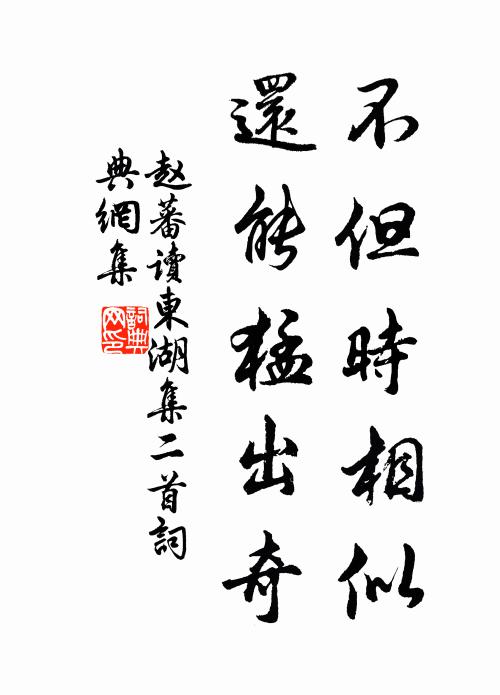 不但時相似
還能猛出奇
赵蕃讀東湖集二首詞
典網集
詞典网印